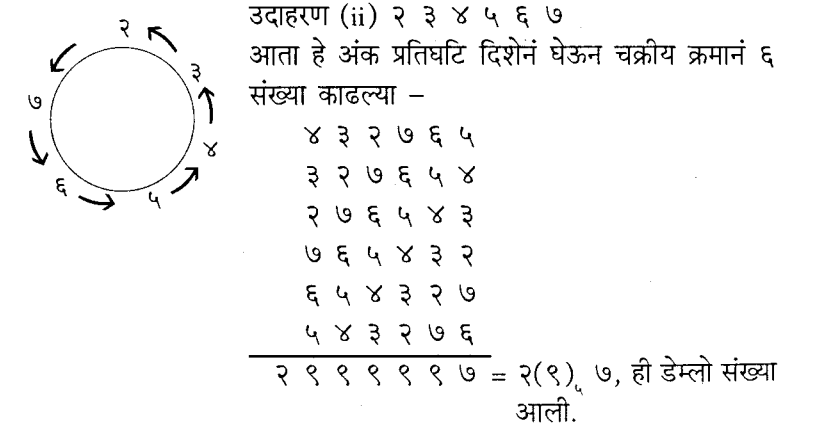 उदाहरण (ii) २ ३ ४ ५ ६ ७
आता हे अंक प्रतिघटि दिशेनं घेऊन चक्रीय क्रमानं ६
संख्या काढल्या –
४ ३ २ ७ ६ ५
३ २ ७ ६ ५ ४
२ ७ ६ ५ ४ ३
७ ६ ५ ४ ३ २
६ ५ ४ ३ २ ७
५ ४ ३ २ ७ ६
२ ९ ९ ९ ९ ९ ७ = २(९)₅ ७, ही डेम्लो संख्या
आली.
२
३
४
५
६
७